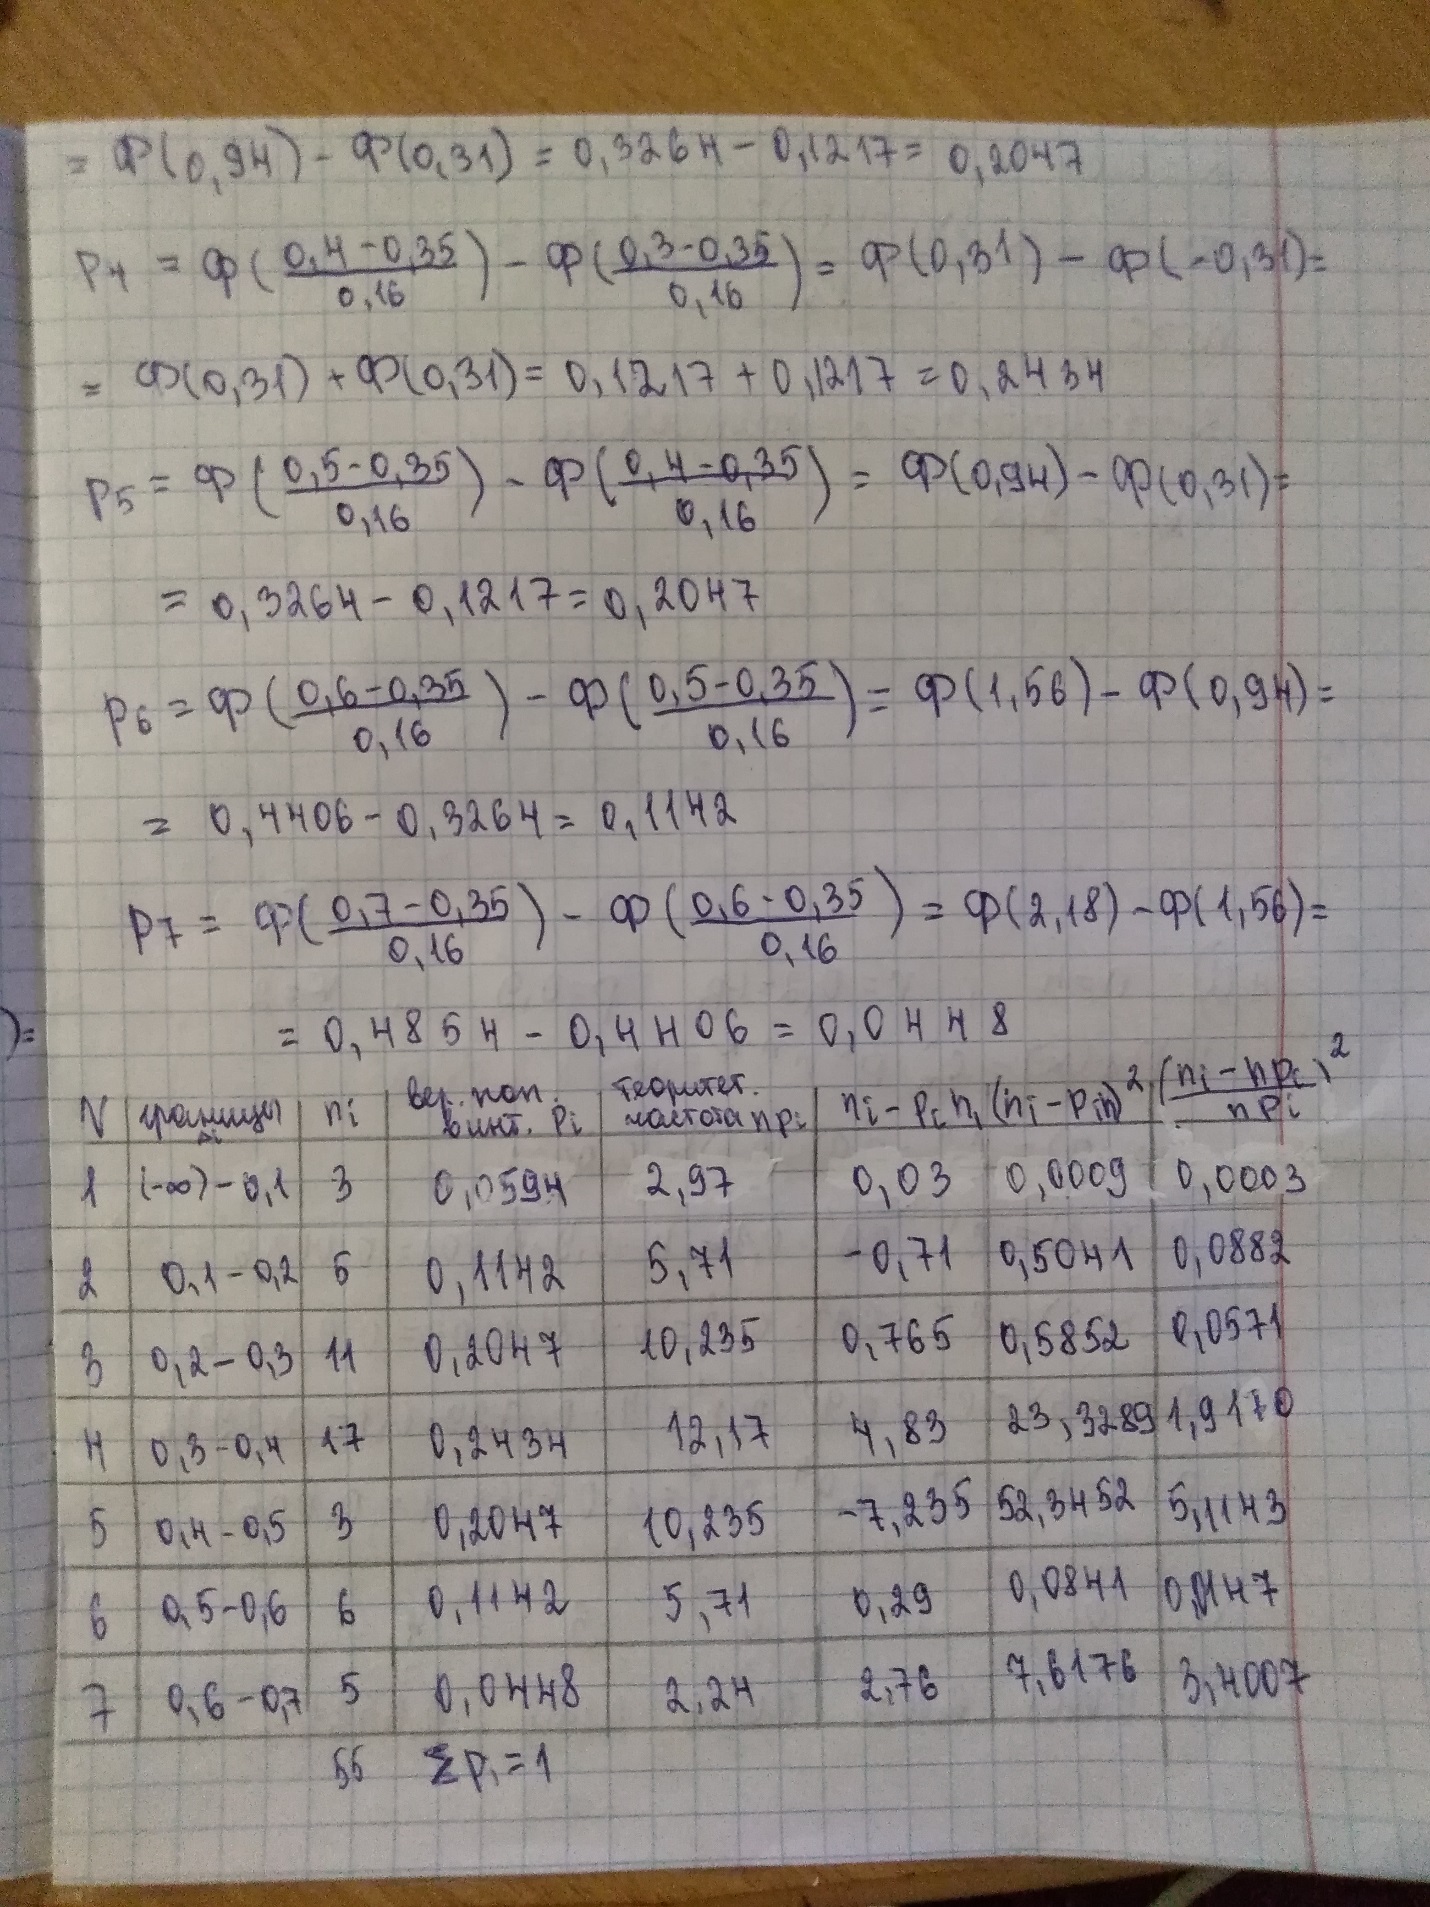 = Ф(0,94) - Ф(0,31) = 0,3264 - 0,1217 = 0,2047
P4 = Ф((0,4-0,35)/0,16) - Ф((0,3-0,35)/0,16) = Ф(0,31) - Ф(-0,31) =
= Ф(0,31) + Ф(0,31) = 0,1217 + 0,1217 = 0,2434
P5 = Ф((0,5-0,35)/0,16) - Ф((0,4-0,35)/0,16) = Ф(0,94) - Ф(0,31) =
= 0,3264 - 0,1217 = 0,2047
P6 = Ф((0,6-0,35)/0,16) - Ф((0,5-0,35)/0,16) = Ф(1,56) - Ф(0,94) =
= 0,4406 - 0,3264 = 0,1142
P7 = Ф((0,7-0,35)/0,16) - Ф((0,6-0,35)/0,16) = Ф(2,18) - Ф(1,56) =
)=
= 0,4854 - 0,4406 = 0,0448
N границы Δi ni вер. поп. в инт. Pi теоритет. частота npi ni - pi n (ni - pin)² (ni - npi)²/npi
1 (-∞) - 0,1 3 0,0594 2,97 0,03 0,0009 0,0003
2 0,1 - 0,2 5 0,1142 5,71 -0,71 0,5041 0,0882
3 0,2 - 0,3 11 0,2047 10,235 0,765 0,5852 0,0571
4 0,3 - 0,4 17 0,2434 12,17 4,83 23,3289 1,9170
5 0,4 - 0,5 3 0,2047 10,235 -7,235 52,3452 5,1143
6 0,5 - 0,6 6 0,1142 5,71 0,29 0,0841 0,0147
7 0,6 - 0,7 5 0,0448 2,24 2,76 7,6176 3,4007
55 Σ Pi = 1